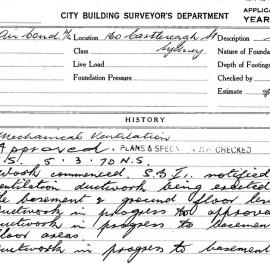 CITY BUILDING SURVEYOR'S DEPARTMENT
APPLICA
YEAR
Location 160 Castlereagh St Description
Class Sydney Nature of Founda
Live Load Depth of Footings
Foundation Pressure Checked by
Estimate
HISTORY
Mechanical Ventilation
Approved. PLANS & SPECS CHECKED
S. 5.3.70 N.S.
Work commenced. S.B.I. notified
ventilation ductwork being erected
basement & ground floor
ductwork in progress to approval
ductwork in progress to basement
floor areas.
ductwork in progess to basement